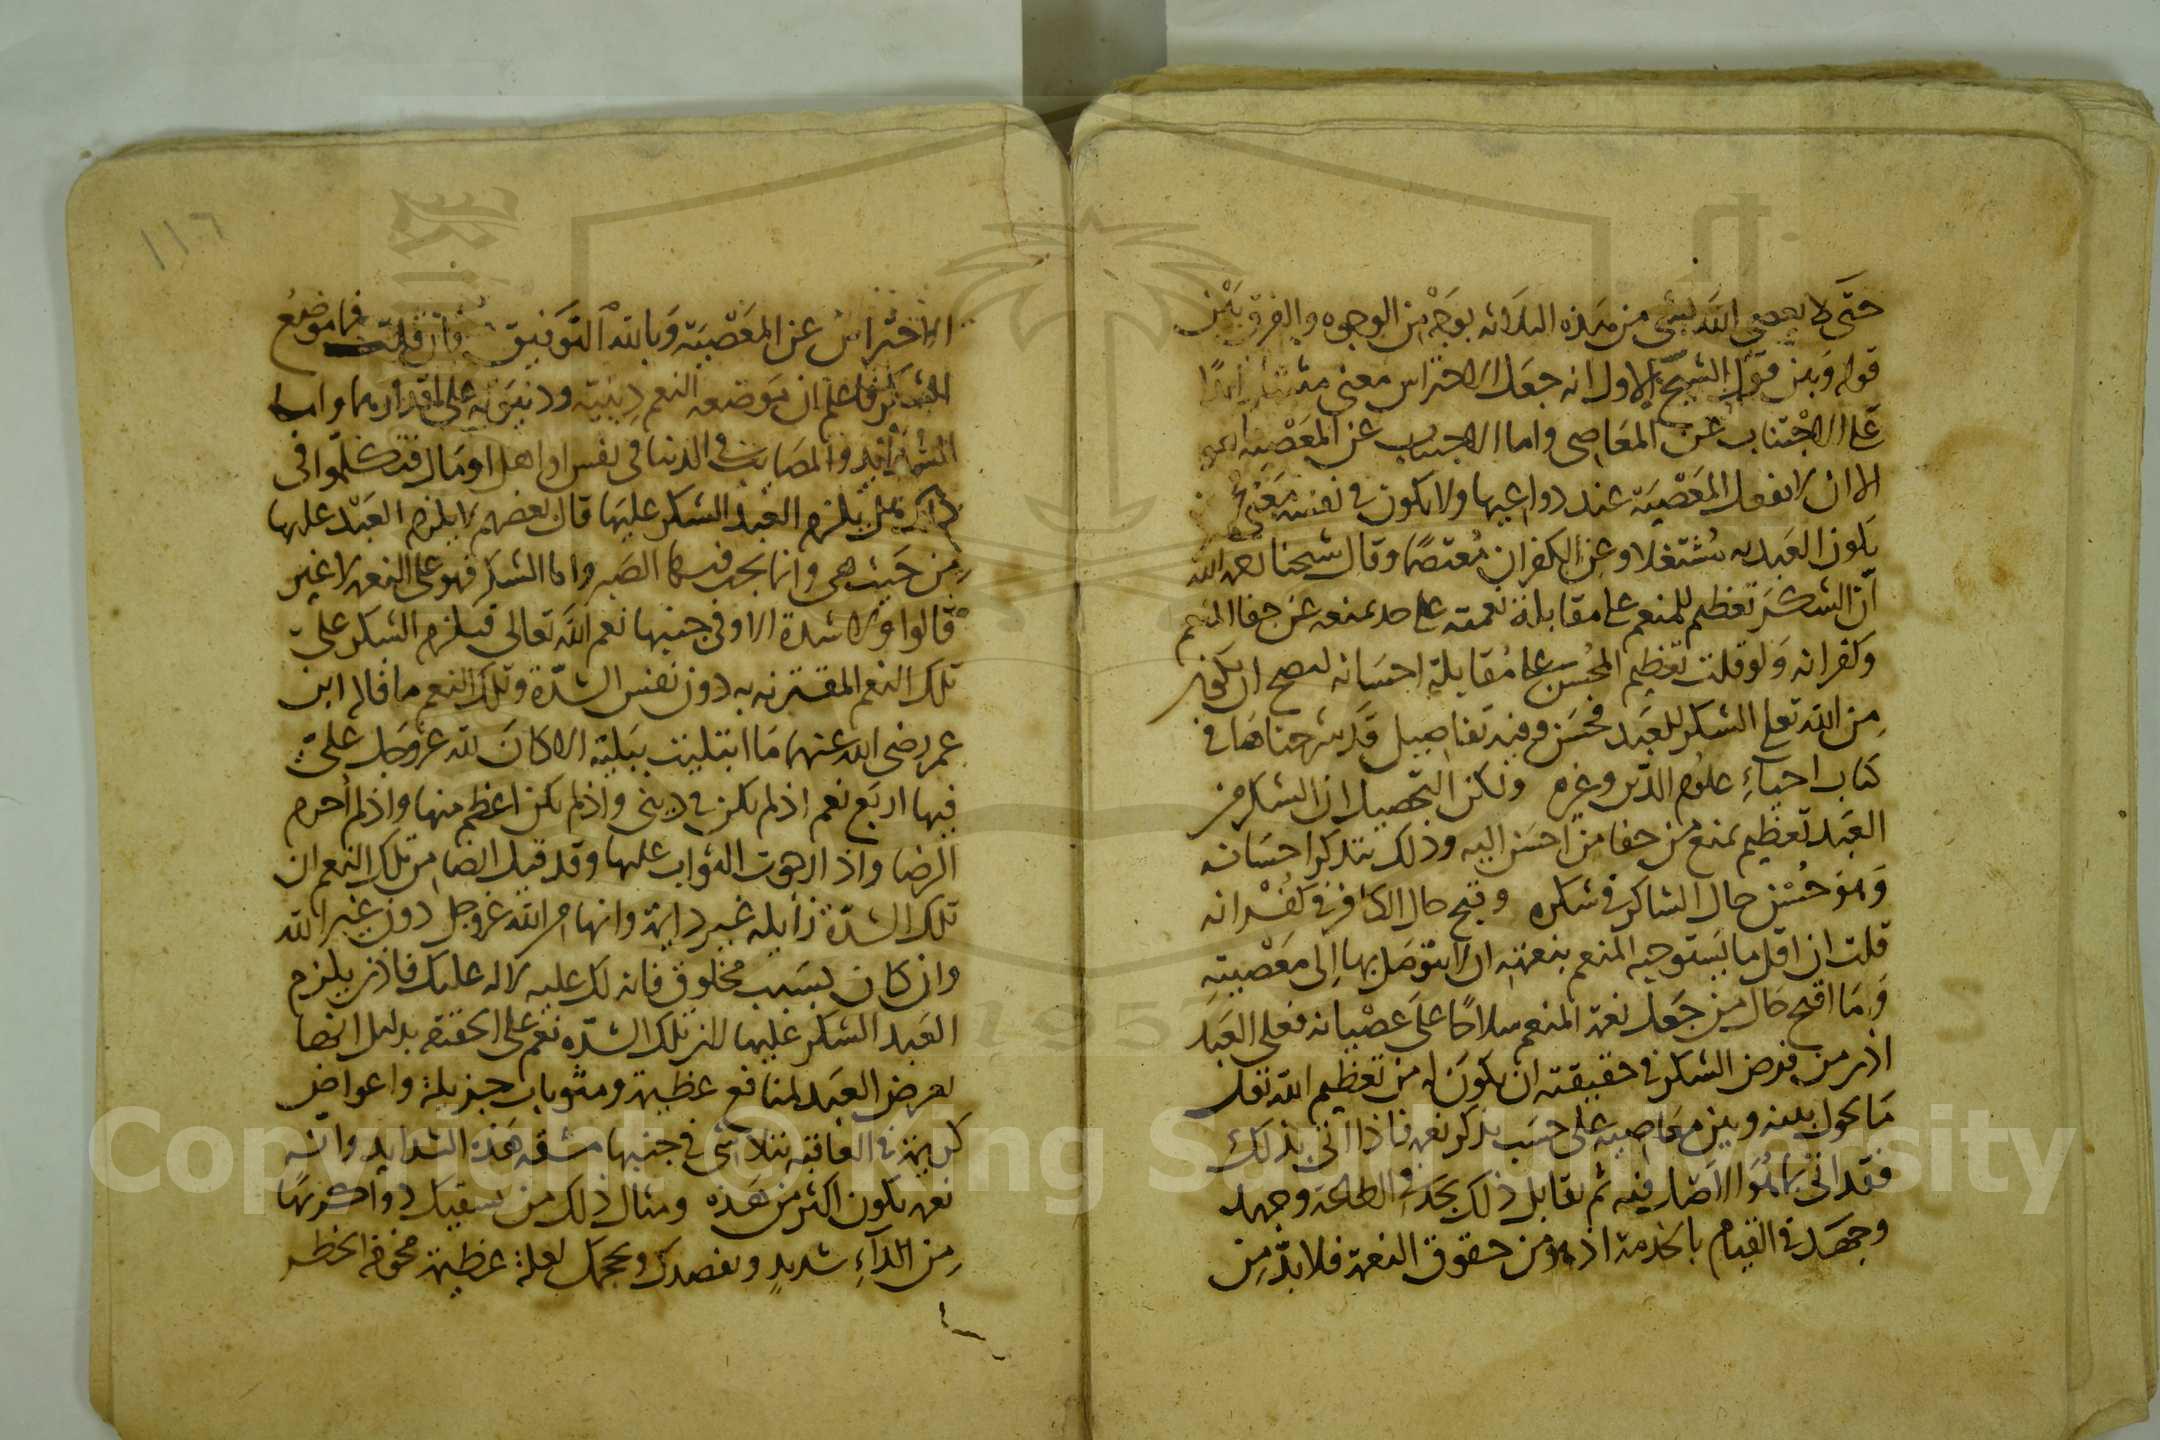 حتى لا يعصي الله بشي من هذه الثلاثه بوجه من الوجوه والفرق بين
قوله وبين قول الشيخ الاول انه جعل الاحتراس معنى مثبتا زايدًا
على الاجتناب عن المعاصي واما الاجتناب عن المعصيه فهو
الا ان لا يفعل المعصية عند دواعيها ولا يكون في نفسه معنى
يكون العبد به مشتغلا وعن الكفران معتصمًا وقال شيخنا رحمه الله
ان الشكر تعظيم للمنعم على مقابلة نعمته على حد يمنعه عن جفا المنعم
وكفرانه ولو قلت تعظيم المحسن على مقابلة احسانه ليصح ان يكون
من الله تعلى الشكر للعبد فحسن وفيه تفاصيل قد شرحناها في
كتاب احياء علوم الدين وغيره ولكن التحصيل ان الشكر من
العبد تعظيم يمنع من جفا من احسن اليه وذلك بتذكر احسانه
وهو حسن حال الشاكر في شكره وقبح حال الكافر في كفرانه
قلت ان اقل ما يستوجبه المنعم بنعمته ان لا يتوصل بها الى معصيته
وما اقبح حال من جعل نعمة المنعم سلاحًا على عصيانه فعلى العبد
اذن من فرض الشكر في حقيقته ان يكون له من تعظيم الله تعلى
ما يحول بينه وبين معاصيه على حسب تذكر نعمه فاذا اتى بذلك
فقد اتى بما هو الاصل فيه ثم تقابل ذلك بجد في الطاعة وجهد
وجهد في القيام بالخدمة اذ هو من حقوق النعمة فلا بد من
١١٦
الاحتراس عن المعصية وبالله التوفيق فان قلت فما موضع
الشكر فاعلم ان موضعه النعم دينية ودنيوية على اقدارهما واما
الشدايد والمصايب في الدنيا في نفس او اهل او مال فقد تكلموا في
ذلك هل يلزم العبد الشكر عليها قال بعضهم لا يلزم العبد عليها
من حيث هي وانما يجب فيها الصبر واما الشكر فهو على النعمه لا غير
قالوا ولا شدة الا وفي جنبها نعم الله تعالى فيلزم الشكر على
تلك النعم المقترنه به دون نفس الشدة وتلك النعم ما قاله ابن
عمر رضي الله عنهما ما ابتليت ببلية الا كان لله عز وجل علي
فيها اربع نعم اذ لم تكن في ديني واذ لم تكن اعظم منها واذ لم احرم
الرضا واذ ارجوت الثواب عليها وقد قيل ايضا من تلك النعم ان
تلك الشدة زايله غير داية وانها من الله عز وجل دون غير الله
وان كان بسبب مخلوق فانه لك عليه لا له عليك فاذن يلزم
العبد الشكر عليها لان تلك الشده نعم على الحقيقة بدليل انها
تعرض العبد لمنافع عظيمة ومثوبات جزيلة واعواض
كريمة في العاقبه تتلاشى في جنبها مشقه هذه الشدايد وايّه
نعمه تكون اكثر من هذه ومثال ذلك من يسقيك دواء كريهًا
من الداء شديدٍ ويفصدك ويحجمك لعلة عظيمة مخوفه الخطر